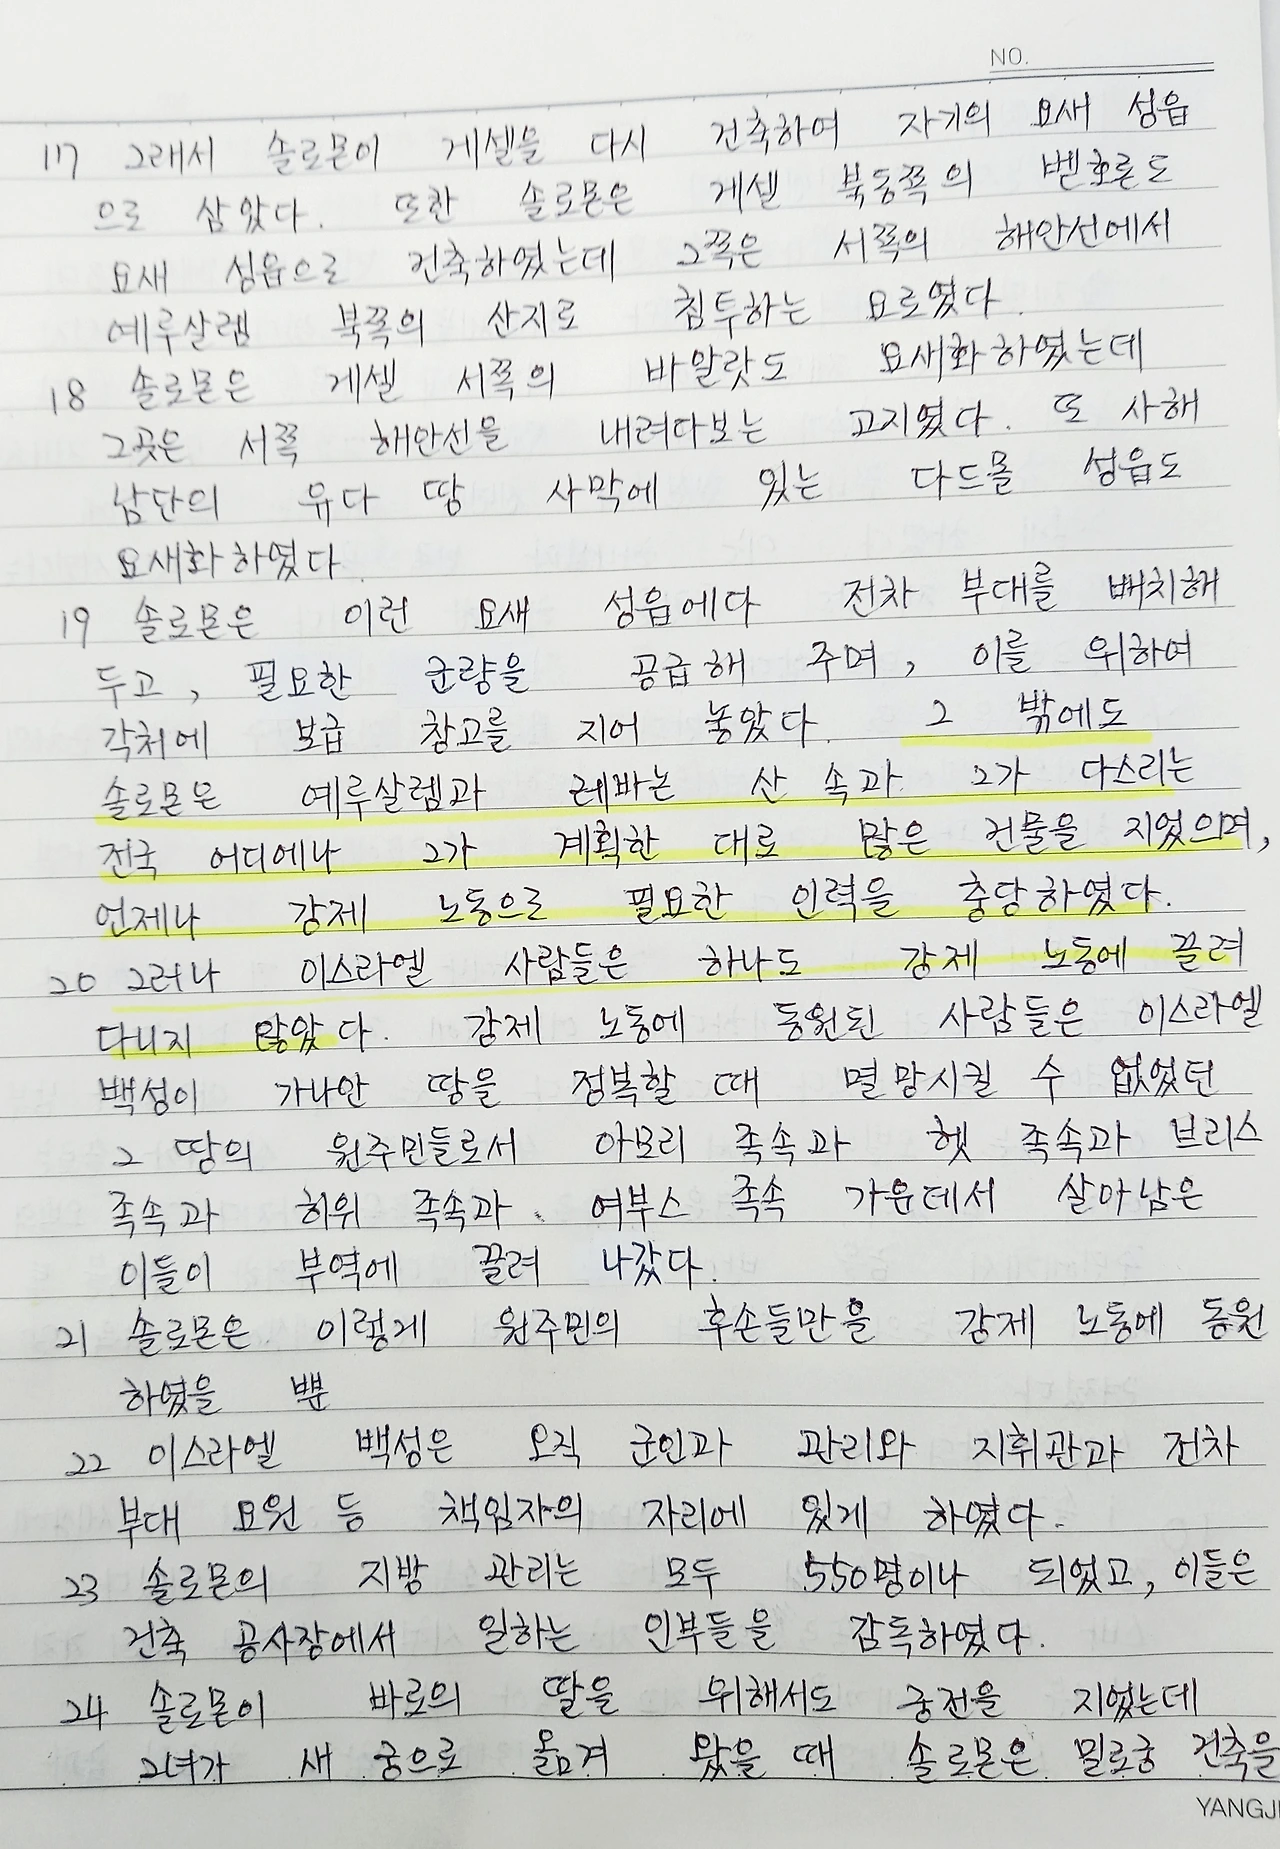 NO.
17 그래서 솔로몬이 게셀을 다시 건축하여 자기의 요새 성읍
으로 삼았다. 또한 솔로몬은 게셀 북동쪽의 벧호론도
요새 성읍으로 건축하였는데 그쪽은 서쪽의 해안선에서
예루살렘 북쪽의 산지로 침투하는 요로였다.
18 솔로몬은 게셀 서쪽의 바알랏도 요새화하였는데
그곳은 서쪽 해안선을 내려다보는 고지였다. 또 사해
남단의 유다 땅 사막에 있는 다드몰 성읍도
요새화 하였다.
19 솔로몬은 이런 요새 성읍에다 전차 부대를 배치해
두고, 필요한 군량을 공급해 주며, 이를 위하여
각처에 보급 창고를 지어 놓았다. 그 밖에도
솔로몬은 예루살렘과 레바논 산 속과 그가 다스리는
전국 어디에나 그가 계획한 대로 많은 건물을 지었으며,
언제나 강제 노동으로 필요한 인력을 충당하였다.
20 그러나 이스라엘 사람들은 하나도 강제 노동에 끌려
다니지 않았다. 강제 노동에 동원된 사람들은 이스라엘
백성이 가나안 땅을 정복할 때 멸망시킬 수 없었던
그 땅의 원주민들로서 아모리 족속과 헷 족속과 브리스
족속과 히위 족속과 여부스 족속 가운데서 살아남은
이들이 부역에 끌려 나갔다.
21 솔로몬은 이렇게 원주민의 후손들만을 강제 노동에 동원
하였을 뿐
22 이스라엘 백성은 오직 군인과 관리와 지휘관과 전차
부대 요원 등 책임자의 자리에 있게 하였다.
23 솔로몬의 지방 관리는 모두 550명이나 되었고, 이들은
건축 공사장에서 일하는 인부들을 감독하였다.
24 솔로몬이 바로의 딸을 위해서도 궁전을 지었는데
그녀가 새 궁으로 옮겨 왔을 때 솔로몬은 밀로궁 건축을
YANGJI